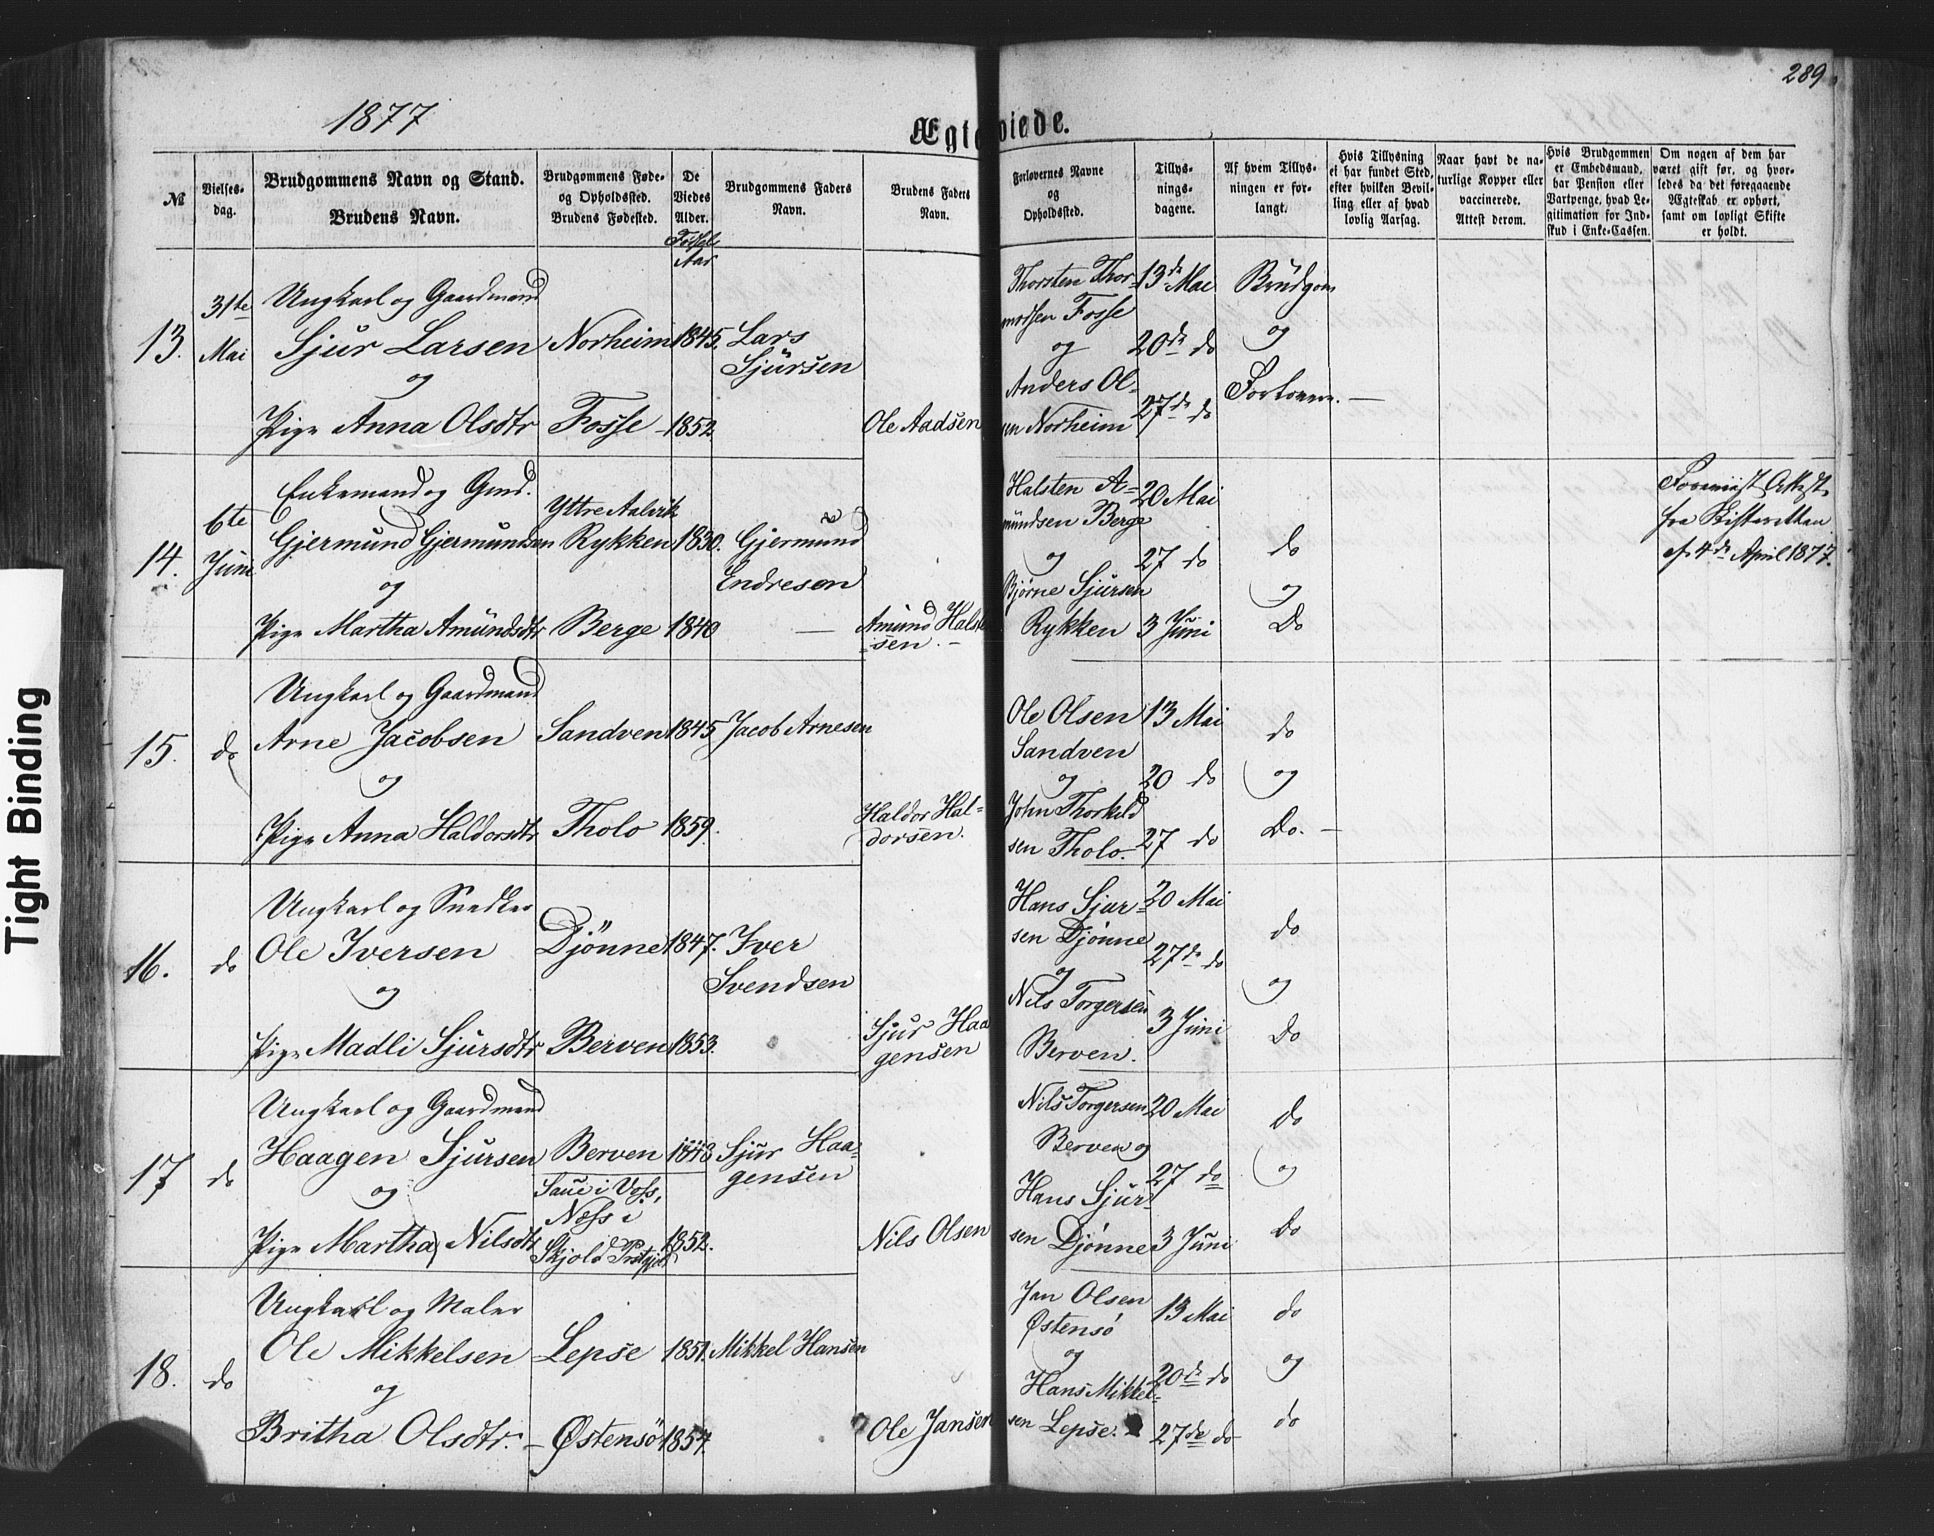 289
1877
Ægteviede.
№
Vielses-
dag.
Brudgommens Navn og Stand.
Brudens Navn.
Brudgommens Føde-
og Opholdssted.
Brudens Fødested.
De
Viedes
Alder.
Aar
Brudgommens Faders
Navn.
Brudens Faders
Navn.
Forlovernes Navne
og
Opholdssted.
Tillys-
nings-
dagene.
Af hvem Tillys-
ningen er for-
langt.
Hvis Tillysning
ei har fundet Sted,
efter hvilken Bevil-
ling eller af hvad
lovlig Aarsag.
Naar havt de na-
turlige Kopper eller
vaccinerede.
Attest derom.
Hvis Brudgommen
er Embedsmand,
har Pension eller
Vartpenge, hvad Le-
gitimation for Ind-
skud i Enke-Cassen.
Om nogen af dem har
været gift før, og hvor-
ledes da det foregaaende
Ægteskab er ophørt,
samt om lovligt Skifte
er holdt.
13.
31te
Mai
Ungkarl og Gaardmand
Sjur Larsen
og
Pige Anna Olsdtr
Norheim
Fosse
1845.
1852
Lars
Sjursen
Ole Aadsen
Thorsten Thor-
modsen Fosse
og
Anders Ol-
sen Norheim
13de Mai
20de do
27de do
Brudgom
og
Forlovere.
14.
6te
Juni
Enkemand og Gmd.
Gjermund Gjermundsen
og
Pige Martha Amundsdtr
Yttre Aalvik
Rykken
Berge
1830.
1840
Gjermund
Endresen
Amund Hals-
sen.
Halsten A-
mundsen Berge
og
Bjørne Sjursen
Rykken
20 Mai
27 do
3 Juni
do
og
Do
fra Skifteretten
af 4de April 1877.
15.
do
Ungkarl og Gaardmand
Arne Jacobsen
og
Pige Anna Haldorsdtr
Sandven
Tholo
1845
1859.
Jacob Arnesen
Haldor Hal-
dorsen.
Ole Olsen
Sandven
og
John Thorkild
sen Tholo.
13 Mai
20 do
27 do
do
og
Do.
16.
do
Ungkarl og Snedker
Ole Iversen
og
Pige Madli Sjursdtr
Djønne
Berven
1847.
1853.
Iver
Svendsen
Sjur Haa
gensen
Hans Sjur-
sen Djønne
og
Nils Torgersen
Berven.
20 Mai
27de do
3 Juni
do
og
Do
17
do
Ungkarl og Gaardmand
Haagen Sjursen
og
Pige Martha Nilsdtr
Berven
Saue i Voss,
Næss i
Skjold Prstgjeld
1843
1852.
Sjur Haa-
gensen
Nils Olsen
Nils Torgersen
Berven og
Hans Sjur
sen Djønne
20 Mai
27 do
3 Juni
do
og
Do
18.
do
Ungkarl og Maler
Ole Mikkelsen
og
Britha Olsdtr.
Lepse
Østensø
1851.
1857.
Mikkel Hansen
Ole Jansen
Jan Olsen
Østensø
og
Hans Mikkel-
sen Lepse.
13 Mai
20de do
27de do
do
og
do
Tight Binding